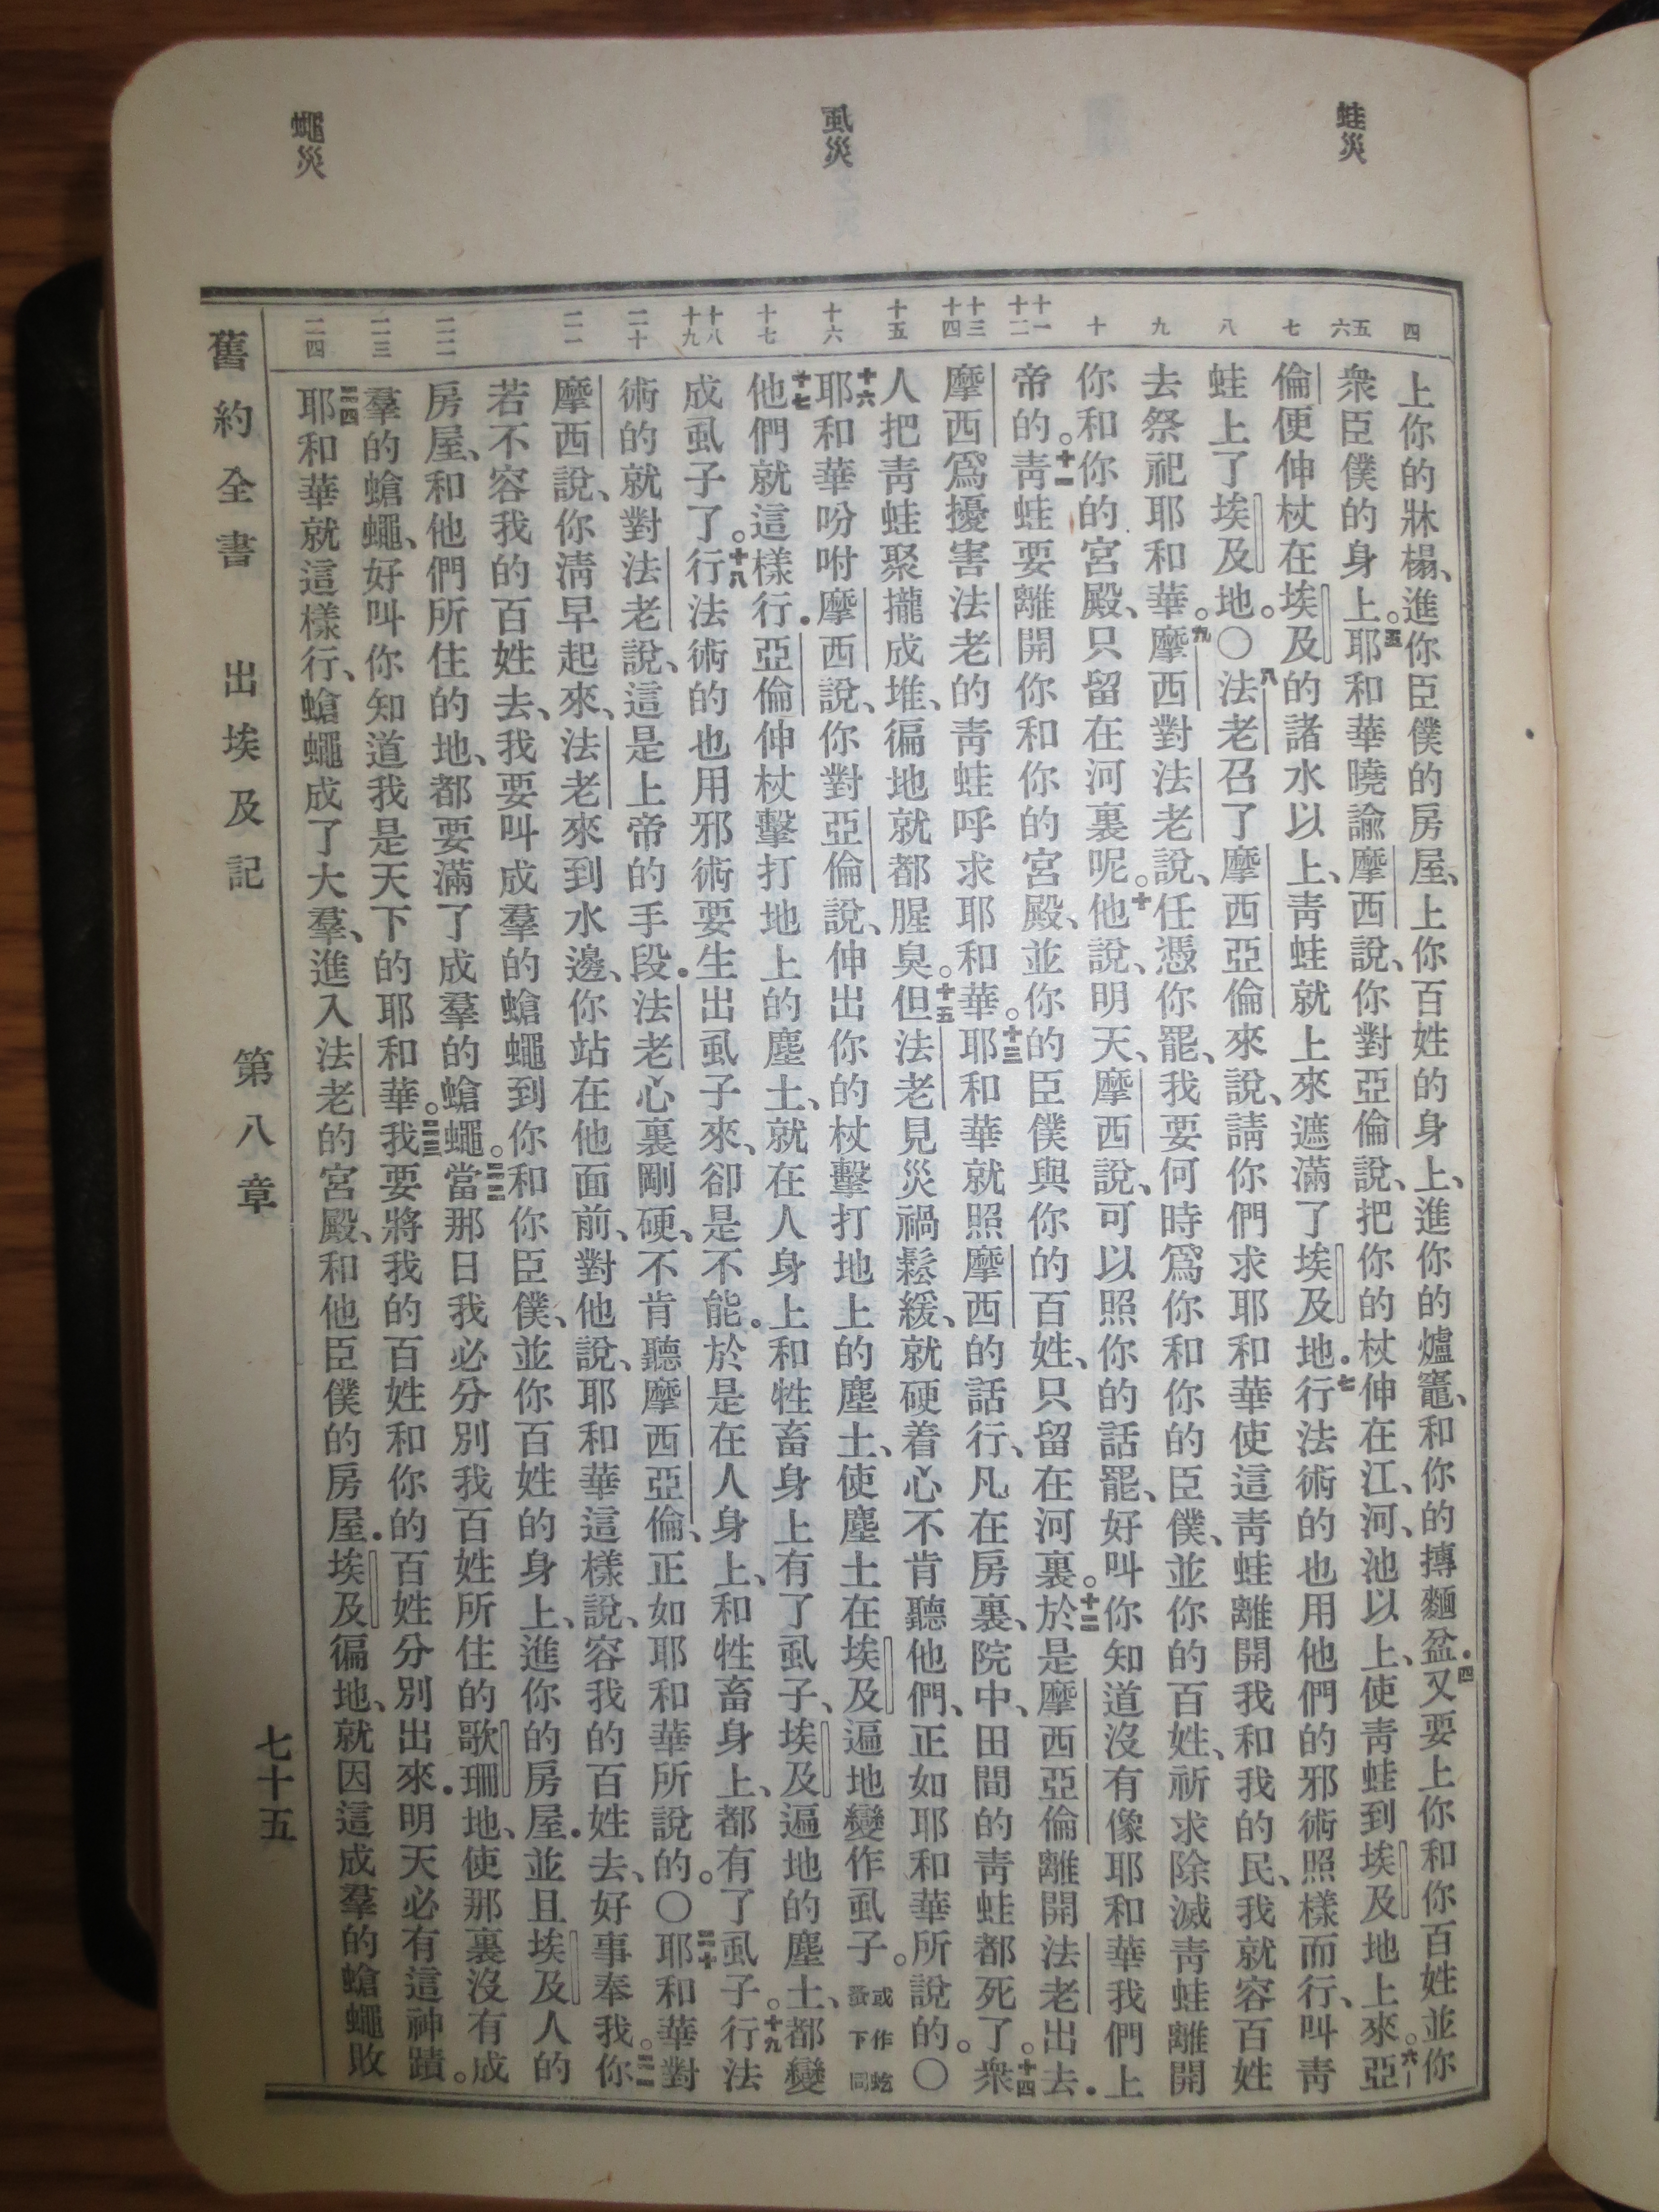 蛙災
虱災
蠅災
四
五
六
七
八
九
十
十一
十二
十三
十四
十五
十六
十七
十八
十九
二十
二一
二二
二三
二四
上你的牀榻、進你臣僕的房屋、上你百姓的身上、進你的爐竈、和你的摶麵盆．四又要上你和你百姓並你
衆臣僕的身上。五耶和華曉諭摩西說、你對亞倫說、把你的杖伸在江、河、池以上、使青蛙到埃及地上來。六亞
倫便伸杖在埃及的諸水以上、青蛙就上來遮滿了埃及地．七行法術的也用他們的邪術照樣而行、叫青
蛙上了埃及地。○八法老召了摩西亞倫來說、請你們求耶和華使這青蛙離開我和我的民、我就容百姓
去祭祀耶和華。九摩西對法老說、任憑你罷、我要何時爲你和你的臣僕、並你的百姓、祈求除滅青蛙離開
你和你的宮殿、只留在河裏呢。十他說、明天、摩西說、可以照你的話罷、好叫你知道沒有像耶和華我們上
帝的。十一青蛙要離開你和你的宮殿、並你的臣僕與你的百姓、只留在河裏。十二於是摩西亞倫離開法老出去．
摩西爲擾害法老的青蛙呼求耶和華。十三耶和華就照摩西的話行、凡在房裏、院中、田間的青蛙都死了。十四衆
人把青蛙聚攏成堆、徧地就都腥臭。十五但法老見災禍鬆緩、就硬着心不肯聽他們、正如耶和華所說的。○
十六耶和華吩咐摩西說、你對亞倫說、伸出你的杖擊打地上的塵土、使塵土在埃及遍地變作虱子。或作虼蚤下同
十七他們就這樣行．亞倫伸杖擊打地上的塵土、就在人身上和牲畜身上有了虱子、埃及遍地的塵土、都變
成虱子了。十八行法術的也用邪術要生出虱子來、卻是不能。於是在人身上、和牲畜身上、都有了虱子。十九行法
術的就對法老說、這是上帝的手段．法老心裏剛硬、不肯聽摩西亞倫、正如耶和華所說的。○二十耶和華對
摩西說、你清早起來、法老來到水邊、你站在他面前、對他說、耶和華這樣說、容我的百姓去、好事奉我。二一你
若不容我的百姓去、我要叫成羣的蒼蠅到你和你臣僕、並你百姓的身上、進你的房屋．並且埃及人的
房屋、和他們所住的地、都要滿了成羣的蒼蠅。二二當那日我必分別我百姓所住的歌珊地、使那裏沒有成
羣的蒼蠅、好叫你知道我是天下的耶和華。二三我要將我的百姓和你的百姓分別出來．明天必有這神蹟。
二四耶和華就這樣行、蒼蠅成了大羣、進入法老的宮殿、和他臣僕的房屋．埃及徧地、就因這成羣的蒼蠅敗
舊約全書　出埃及記　第八章　七十五